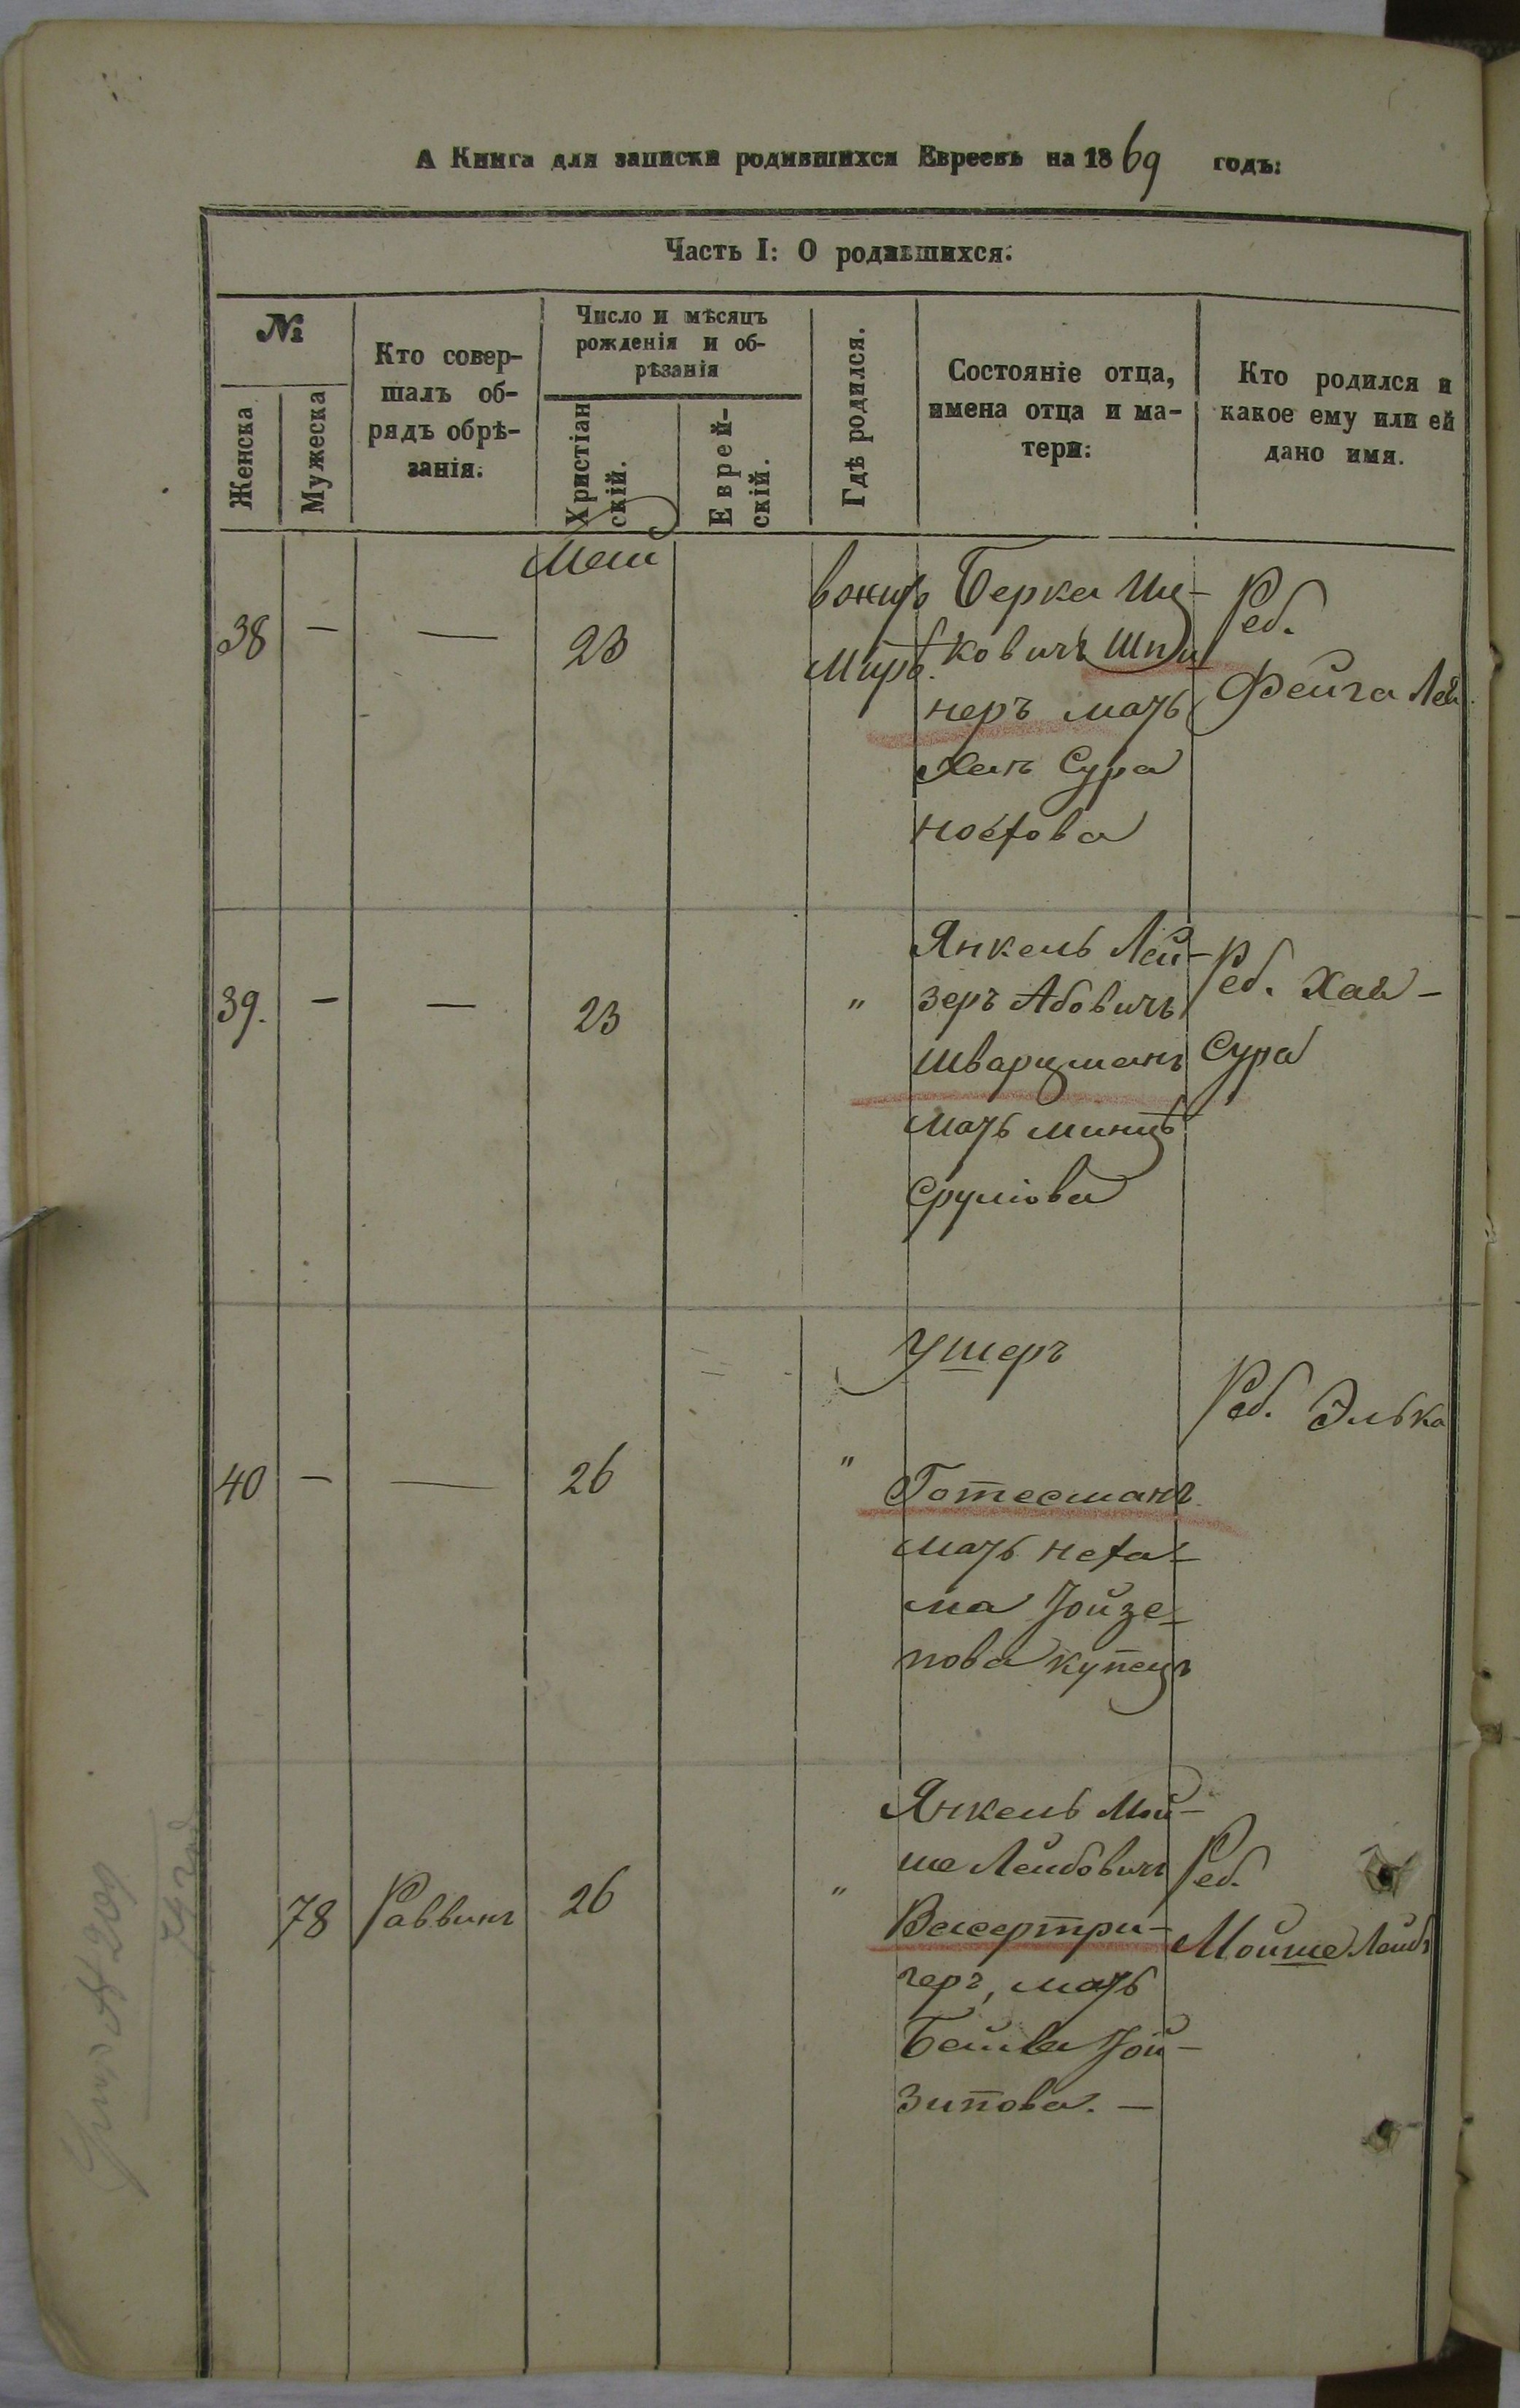 А Книга для записки родившихся Евреевъ на 1869 годъ:
Часть I: О родившихся.
№
Женска
Мужеска
Кто совер-
шалъ об-
рядъ обрѣ-
занія.
Число и мѣсяцъ
рожденія и об-
рѣзанія
Христіан
скій.
Еврей-
скій.
Гдѣ родился.
Состояніе отца,
имена отца и ма-
тери:
Кто родился и
какое ему или ей
дано имя.
Май
38 — — 23
Берка Иц-
ковичъ Шпи
неръ мать
Хая Сура
Реб.
Фейга Лея
39. — — 23 "
Янкель Лей-
зеръ Абовичъ
Шварцманъ
мать
Срулiова
Реб. Хая-
Сура
40 — — 26 "
Ушеръ
Готесманъ
мать Неха-
ма Іойзе-
пова купецъ
Реб. Элька
78 Раввинъ 26 "
Янкель Мой-
ше Лейбовичъ
Васертри-
геръ, мать
Бейла Іой-
зипова. —
Реб.
Мойше Лейбъ
№ 209